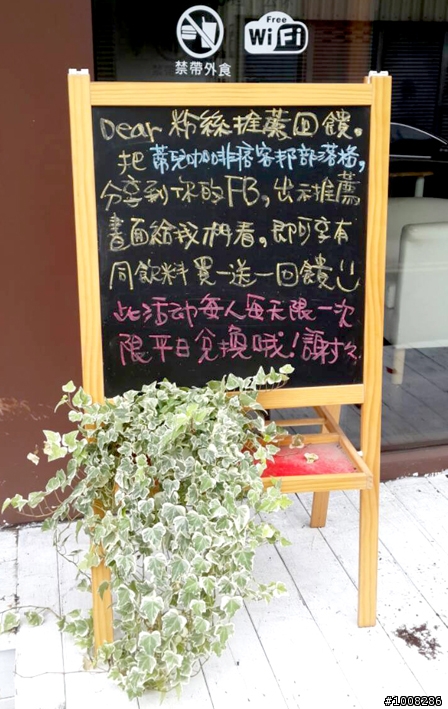 Free
WiFi
禁帶外食
Dear 粉絲推薦回饋。
把 蒂兒咖啡痞客邦部落格,
分享到你的FB,出示推薦
畫面給我們看,即可享有
同飲料買一送一回饋
此活动每人每天限一次
限平日兌換哦!謝謝
#1008286